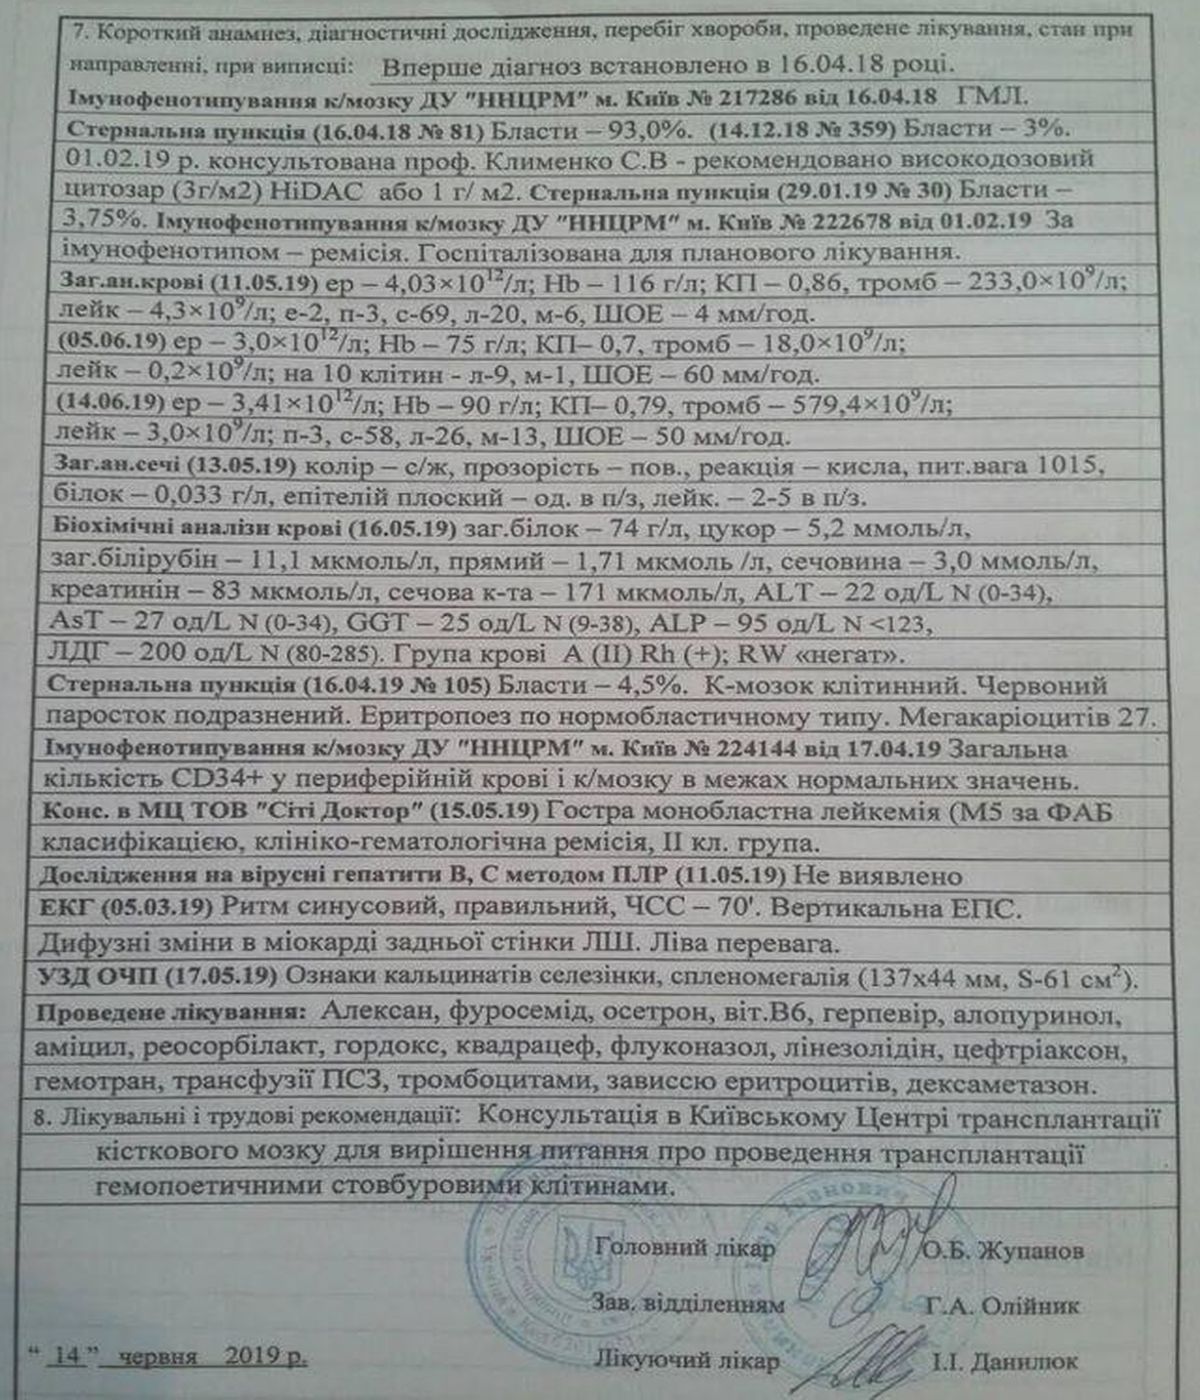 7. Короткий анамнез, діагностичні дослідження, перебіг хвороби, проведене лікування, стан при
направленні, при виписці: Вперше діагноз встановлено в 16.04.18 році.
Імунофенотипування к/мозку ДУ "ННЦРМ" м. Київ № 217286 від 16.04.18 ГМЛ.
Стернальна пункція (16.04.18 № 81) Бласти – 93,0%. (14.12.18 № 359) Бласти – 3%.
01.02.19 р. консультована проф. Клименко С.В - рекомендовано високодозовий
цитозар (3г/м2) HiDAC або 1 г/ м2. Стернальна пункція (29.01.19 № 30) Бласти –
3,75%. Імунофенотипування к/мозку ДУ "ННЦРМ" м. Київ № 222678 від 01.02.19 За
імунофенотипом – ремісія. Госпіталізована для планового лікування.
Заг.ан.крові (11.05.19) ер – 4,03×10¹²/л; Hb – 116 г/л; КП – 0,86, тромб – 233,0×10⁹/л;
лейк – 4,3×10⁹/л; е-2, п-3, с-69, л-20, м-6, ШОЕ – 4 мм/год.
(05.06.19) ер – 3,0×10¹²/л; Hb – 75 г/л; КП– 0,7, тромб – 18,0×10⁹/л;
лейк – 0,2×10⁹/л; на 10 клітин - л-9, м-1, ШОЕ – 60 мм/год.
(14.06.19) ер – 3,41×10¹²/л; Hb – 90 г/л; КП– 0,79, тромб – 579,4×10⁹/л;
лейк – 3,0×10⁹/л; п-3, с-58, л-26, м-13, ШОЕ – 50 мм/год.
Заг.ан.сечі (13.05.19) колір – с/ж, прозорість – пов., реакція – кисла, пит.вага 1015,
білок – 0,033 г/л, епітелій плоский – од. в п/з, лейк. – 2-5 в п/з.
Біохімічні аналізи крові (16.05.19) заг.білок – 74 г/л, цукор – 5,2 ммоль/л,
заг.білірубін – 11,1 мкмоль/л, прямий – 1,71 мкмоль /л, сечовина – 3,0 ммоль/л,
креатинін – 83 мкмоль/л, сечова к-та – 171 мкмоль/л, ALT – 22 од/L N (0-34),
AsT – 27 од/L N (0-34), GGT – 25 од/L N (9-38), ALP – 95 од/L N <123,
ЛДГ – 200 од/L N (80-285). Група крові А (II) Rh (+); RW «негат».
Стернальна пункція (16.04.19 № 105) Бласти – 4,5%. К-мозок клітинний. Червоний
паросток подразнений. Еритропоез по нормобластичному типу. Мегакаріоцитів 27.
Імунофенотипування к/мозку ДУ "ННЦРМ" м. Київ № 224144 від 17.04.19 Загальна
кількість CD34+ у периферійній крові і к/мозку в межах нормальних значень.
Конс. в МЦ ТОВ "Сіті Доктор" (15.05.19) Гостра монобластна лейкемія (М5 за ФАБ
класифікацією, клініко-гематологічна ремісія, ІІ кл. група.
Дослідження на вірусні гепатити В, С методом ПЛР (11.05.19) Не виявлено
ЕКГ (05.03.19) Ритм синусовий, правильний, ЧСС – 70'. Вертикальна ЕПС.
Дифузні зміни в міокарді задньої стінки ЛШ. Ліва перевага.
УЗД ОЧП (17.05.19) Ознаки кальцинатів селезінки, спленомегалія (137х44 мм, S-61 см²).
Проведене лікування: Алексан, фуросемід, осетрон, віт.В6, герпевір, алопуринол,
аміцил, реосорбілакт, гордокс, квадрацеф, флуконазол, лінезолідін, цефтріаксон,
гемотран, трансфузії ПСЗ, тромбоцитами, зависсю еритроцитів, дексаметазон.
8. Лікувальні і трудові рекомендації: Консультація в Київському Центрі трансплантації
кісткового мозку для вирішення питання про проведення трансплантації
гемопоетичними стовбуровими клітинами.
Головний лікар О.Б. Жупанов
Зав. відділенням Г.А. Олійник
“ 14 ” червня 2019 р. Лікуючий лікар І.І. Данилюк